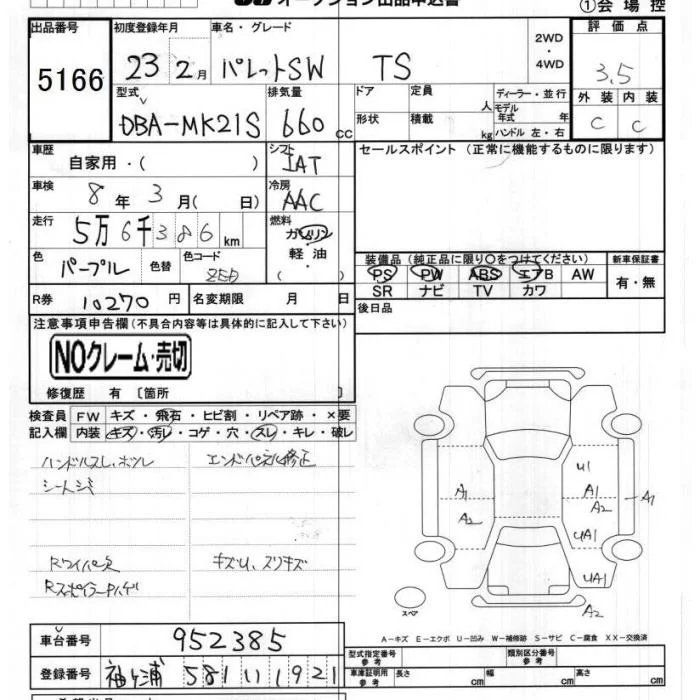 オークション出品申込書
①会場控
出品番号 初度登録年月 車名・グレード 2WD・4WD 評価点
5166 23 2月 パレットSW TS 3.5
型式 排気量 ドア 定員 人 ディーラー・並行 外装 内装
モデル年式 年
DBA-MK21S 660cc 形状 積載 kg ハンドル 左・右 C C
車歴 シフト セールスポイント (正常に機能するものに限ります)
自家用・( ) IAT
車検 8年3月( 日) 冷房 AAC
走行 5万6千386km 燃料 ガソリン
軽油
( )
色 パープル 色替 色コード
装備品 (純正品に限り○をつけてください) 新車保証書
PS PW ABS エアB AW 有・無
SR ナビ TV カワ
R券 10270円 名変期限 月 日
後日品
注意事項申告欄(不具合内容等は具体的に記入して下さい)
NOクレーム・売切
修復歴 有 〔箇所 〕
検査員 FW キズ・飛石・ヒビ割・リペア跡・×要
記入欄 内装 キズ・汚レ・コゲ・穴・スレ・キレ・破レ
ハンドルスレ、ホツレ エンドパネル修正
シートシミ
Rワイパー欠 キズU、スリキズ
RスポイラーPハゲ
U1
A1 A1 A1
A2 A2
UA1
UA1
A2
スペア
A-キズ E-エクボ U-凹み W-補修跡 S-サビ C-腐食 XX-交換済
車台番号 952385
型式指定番号 参考 類別区分番号 参考
登録番号 袖ヶ浦 581 い 1921
車庫証明用 参考 長さ cm 幅 cm 高さ cm